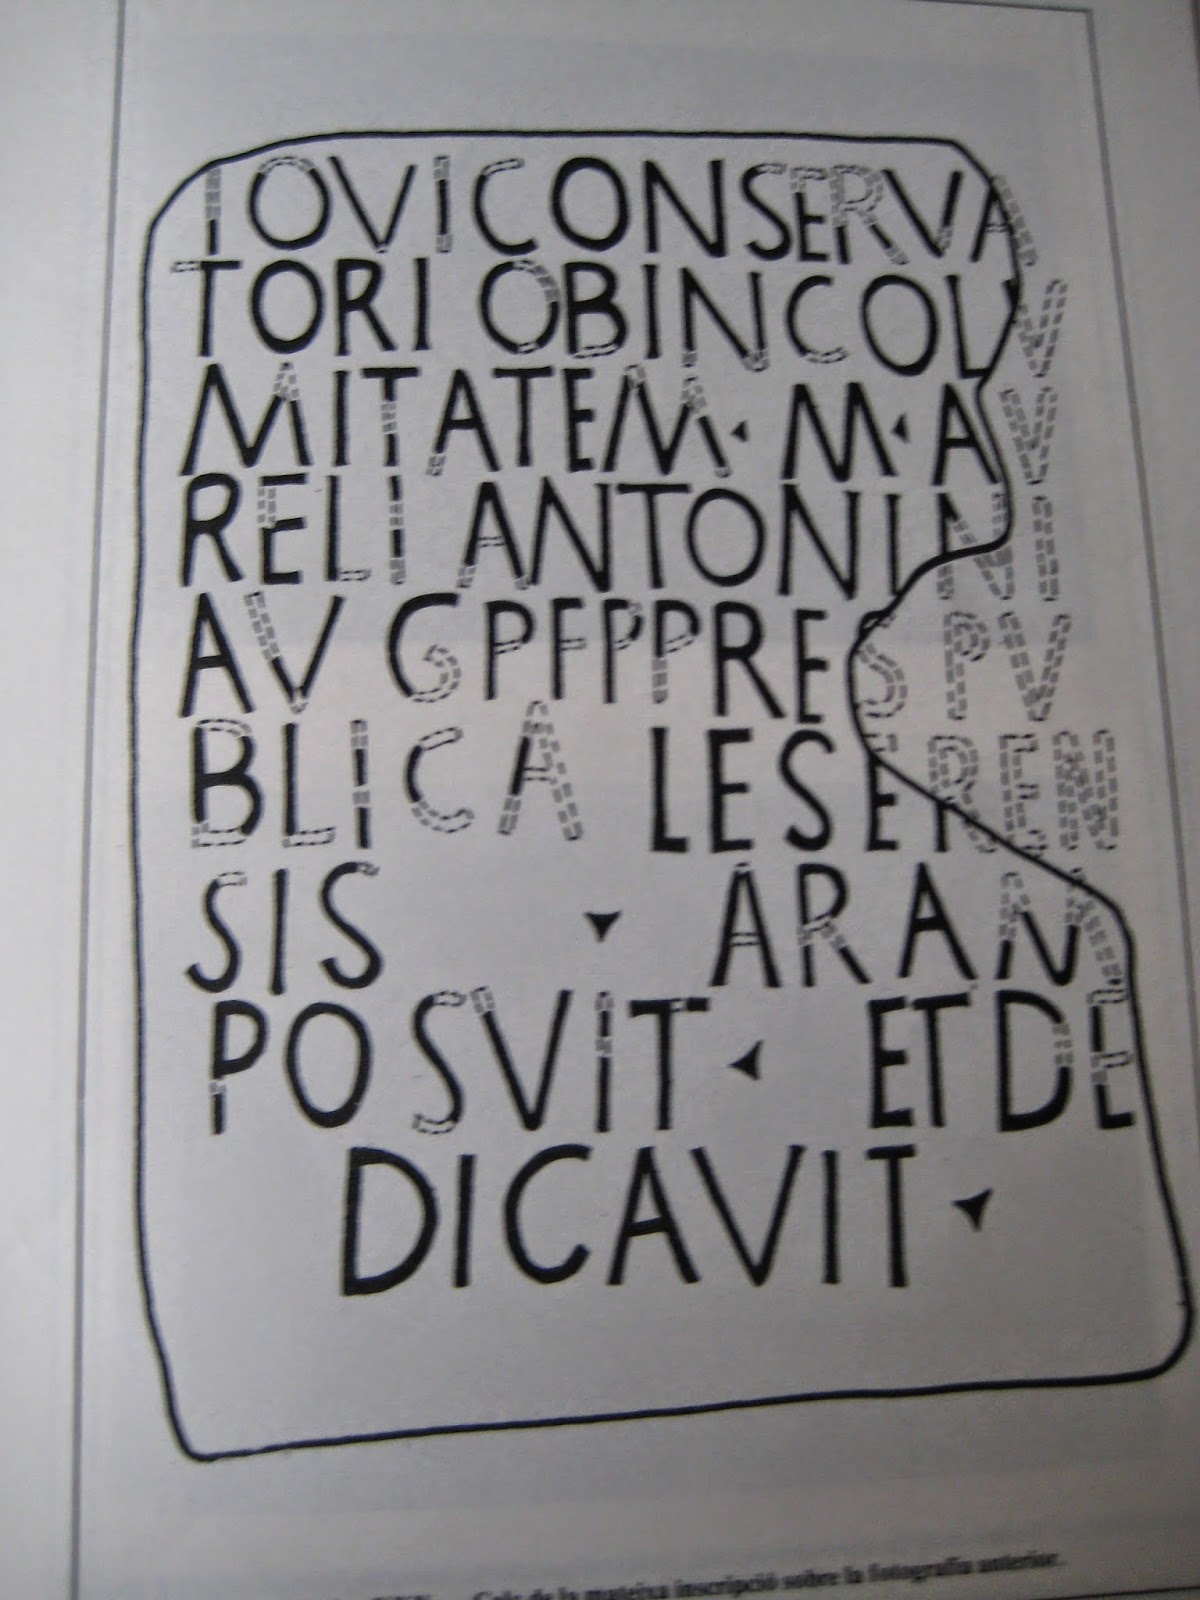 IOVI CONSERVA
TORI OB INCOLV
MITATEM · M · AV
RELI ANTONINI
AVG P F P P RES PV
BLICA LESEREN
SIS ▾ ARAN
POSVIT · ET DE
DICAVIT ·
Calc de la mateixa inscripció sobre la fotografia anterior.